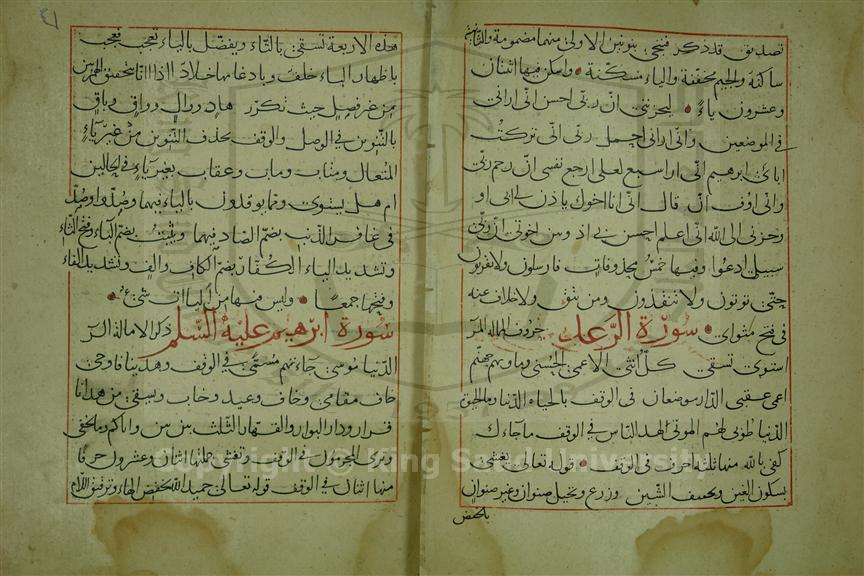 تصديق قد ذكر فنجي بنونين الاولى منهما مضمومة والثانية
ساكنة والجيم مخففة والياء مسكنة واسكن فيها اثنان
وعشرون ياءً ليحزنني انّ ربّي احسن اني اراني
في الموضعين وانّي اراني احمل ربّي انّي تركت
ابائي ابرهيم انّي ارا سبع لعلي ارجع نفسي انّ رحم ربّي
وانّي اوف انّي قال انّي انا اخوك ياذن لي ابي او
وحزني الى الله انّي اعلم احسن بي اذ وبين اخوتي انّ ربّي
سبيلي ادعوا وفيها خمس محذوفات فارسلون ولا تقربون
حتّى توتون ولا تفندون ومن يتق ولا خلاف عنه
في فتح مثواي سورة الرعد حروف الاماله المر
استوى تسقى كلّ انثى الاعمى الحسنى وماويهم جهنم
اعمى عقبى الدّار موضعان في الوقف بالحياة الدّنيا وما الحيوة
الدنيا طوبى لهم الموتى لهدى النّاس في الوقف ما جاءك
كفى بالله منها ثلثة احرف في الوقف قوله تعالى يغشي
بسكون الغين وتخفيف الشين وزرع ونخيل صنوان وغير صنوان
بالخفض
٤١
هذه الاربعة تسقى بالتّاء ويفضّل بالياء تعجب فعجب
باظهار الباء خلف وبادغامها خلاد ااذا ائنا بتحقيق الهمزتين
من غير فصل حيث تكرر هادٍ ووالٍ وواقٍ وباقٍ
بالتّنوين في الوصل والوقف بحذف التّنوين من غير ياءٍ
المتعال ومتاب وماب وعقاب بغير ياءٍ في الحالين
ام هل يستوي وممّا يوقدون بالياء فيهما وصدّوا وصدّ
في غافر الّذين بضم الصّاد فيهما ويثبت بضم الياء وفتح الثّاء
وتشديد الباء الكفّار بضم الكاف والف وتشديد الفاء
وفتحها جمعًا وليس فيها من الياات شيء
سورة ابرهيم عليه السّلم ذكر الامالة الر
الدّنيا موسى جاءتهم مسمّى في الوقف وهدينا فاوحى
خاف مقامي وخاف وعيد وخاب ويسقى من هدانا
قرار ودار البوار والقهّار الثّلث بين بين واتاكم وما يخفى
وترى المجرمين في الوقف وتغشى جملتها اثنان وعشرون حرفًا
منها اثنان في الوقف قوله تعالى حميد الله بخفض الهاء وترقيق اللام
Copyright © King Saud University